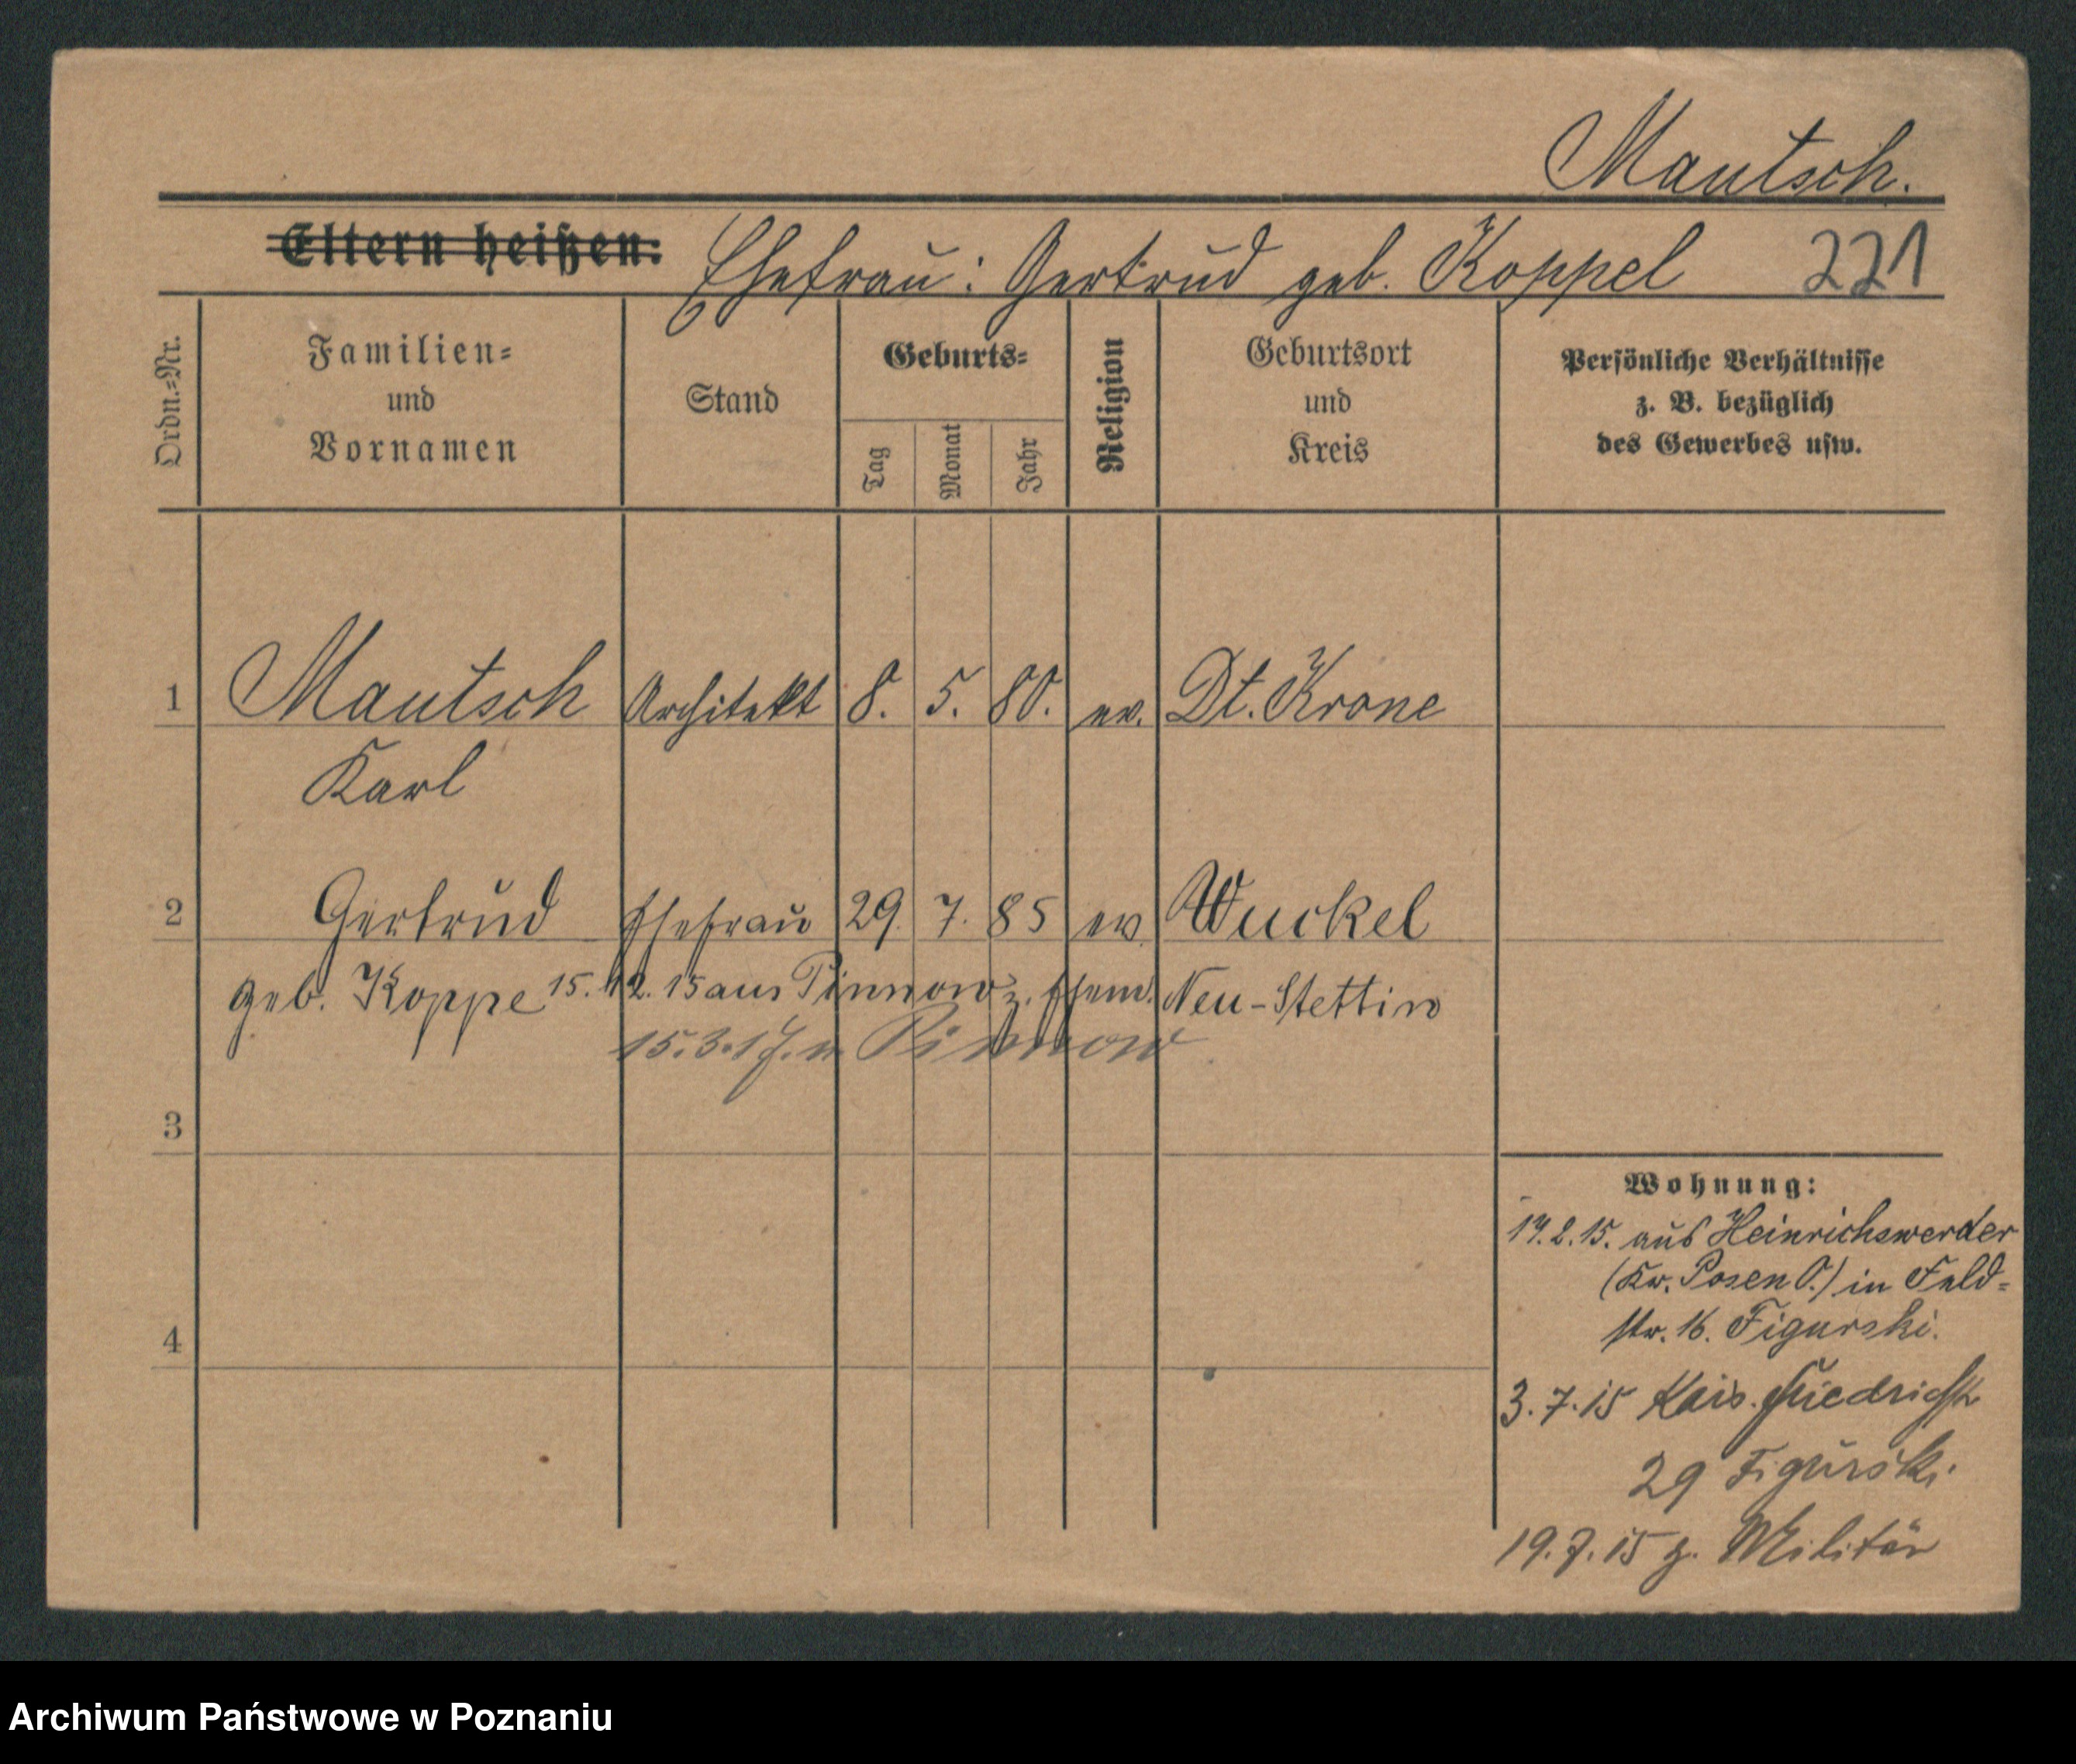 Mautsch.
Eltern heißen: Ehefrau: Gertrud geb. Koppel 221
Ordn.-Nr.
Familien-
und
Vornamen
Stand
Geburts-
Tag
Monat
Jahr
Religion
Geburtsort
und
Kreis
Persönliche Verhältnisse
z. B. bezüglich
des Gewerbes usw.
1 Mautsch Architekt 8. 5. 80. ev. Dt. Krone
Karl
2 Gertrud Ehefrau 29. 7. 85 ev. Wuckel
geb. Koppe 15.12.15 aus Pinnow z. Ehem. Neu-Stettin
15.3.17. n Pinnow
3
4
Wohnung:
14.2.15. aus Heinrichswerder
(Kr. Posen O.) in Feld-
str. 16. Figurski.
3.7.15 Kais. Friedrichstr
29 Figurski.
19.7.15 z. Militär
Archiwum Państwowe w Poznaniu